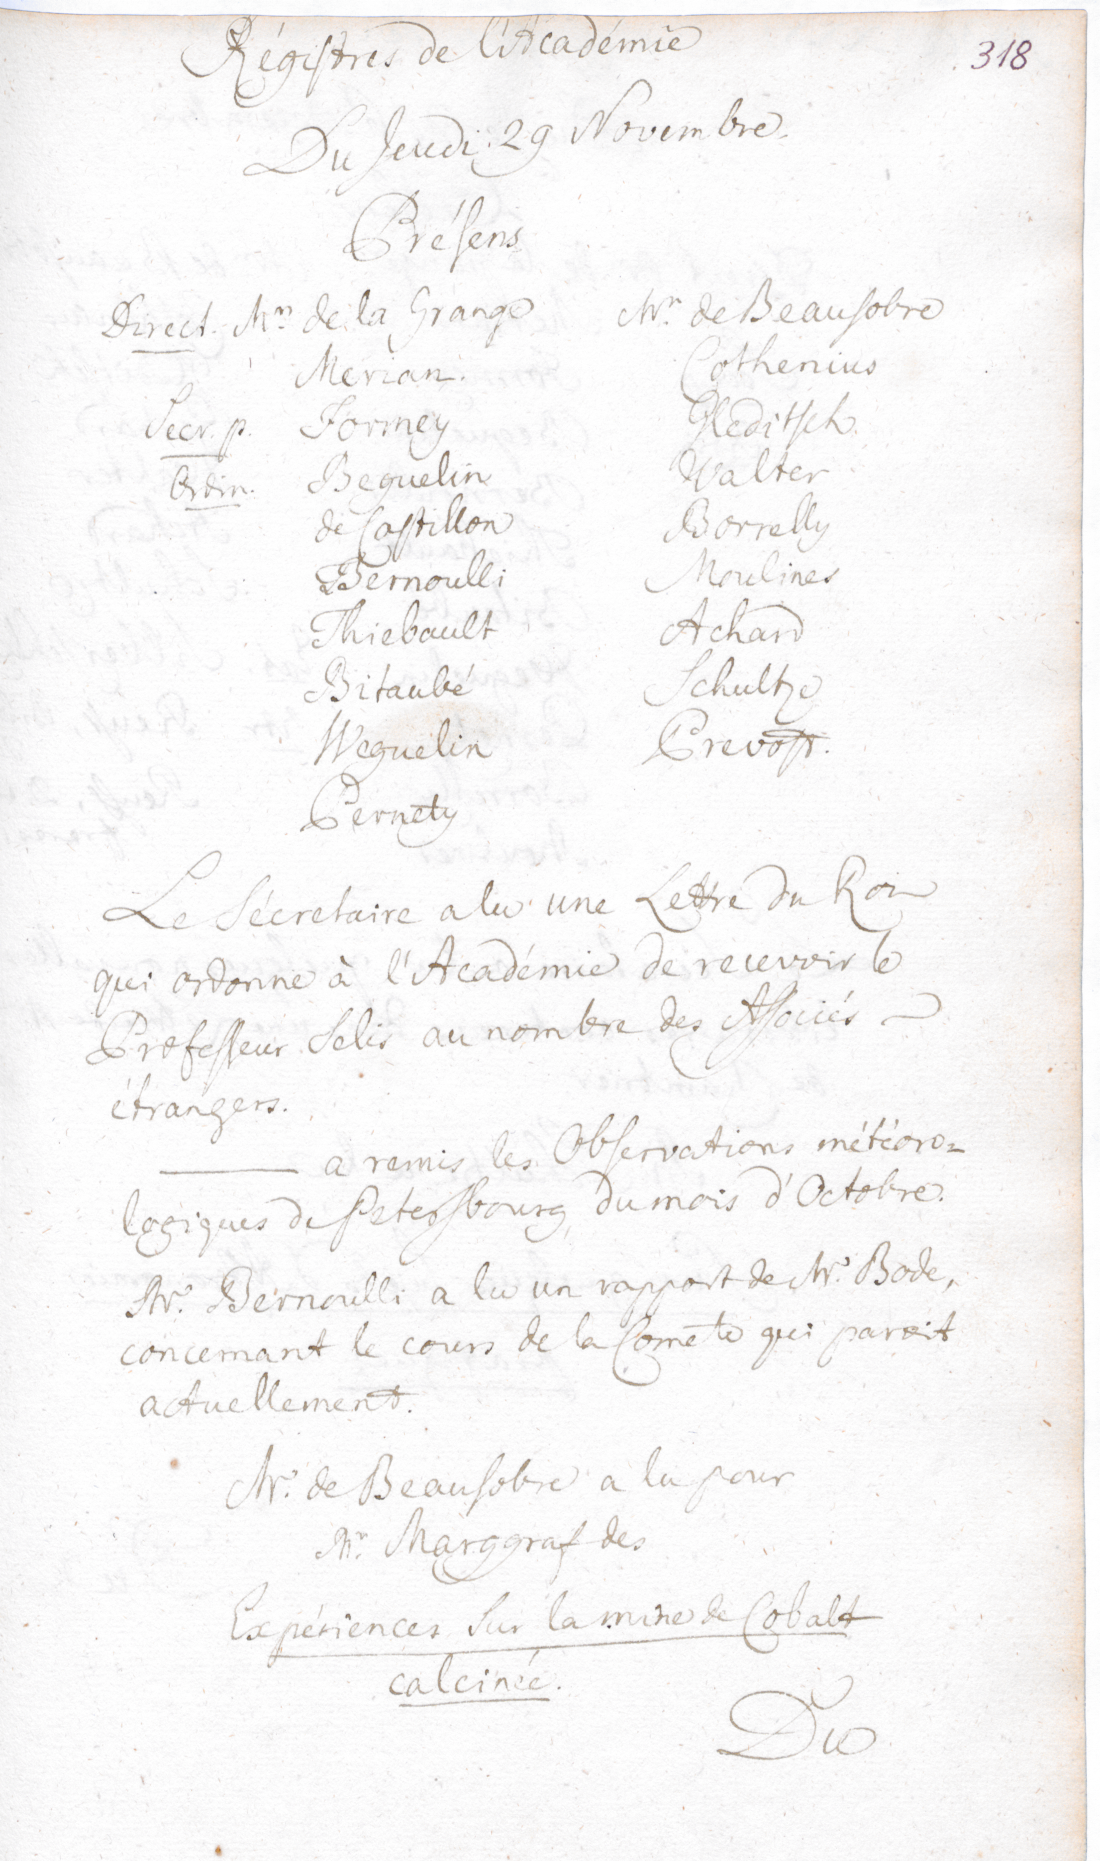 Régistres de l'Académie
318
Du Jeudi 29 Novembre.
Présens
Direct. Mrs de la Grange
Merian.
Secr. p. Formey
Ordin. Beguelin
de Castillon
Bernoulli
Thiebault
Bitaubé
Weguelin
Pernety
Mr. de Beausobre
Cothenius
Gleditsch.
Walter
Borrelly
Moulines
Achard
Schultze
Prevost.
Le Sécretaire a lu une Lettre du Roi
qui ordonne à l'Académie de recevoir le
Professeur Selis au nombre des Associés
étrangers.
——— a remis les Observations météoro=
logiques de Petersbourg du mois d'Octobre.
Mr. Bernoulli a lu un rapport de Mr. Bode,
concernant le cours de la Comete qui paroit
actuellement.
Mr. de Beausobre a lu pour
Mr. Marggraf des
Expériences sur la mine de Cobalt
calcinée.
Du